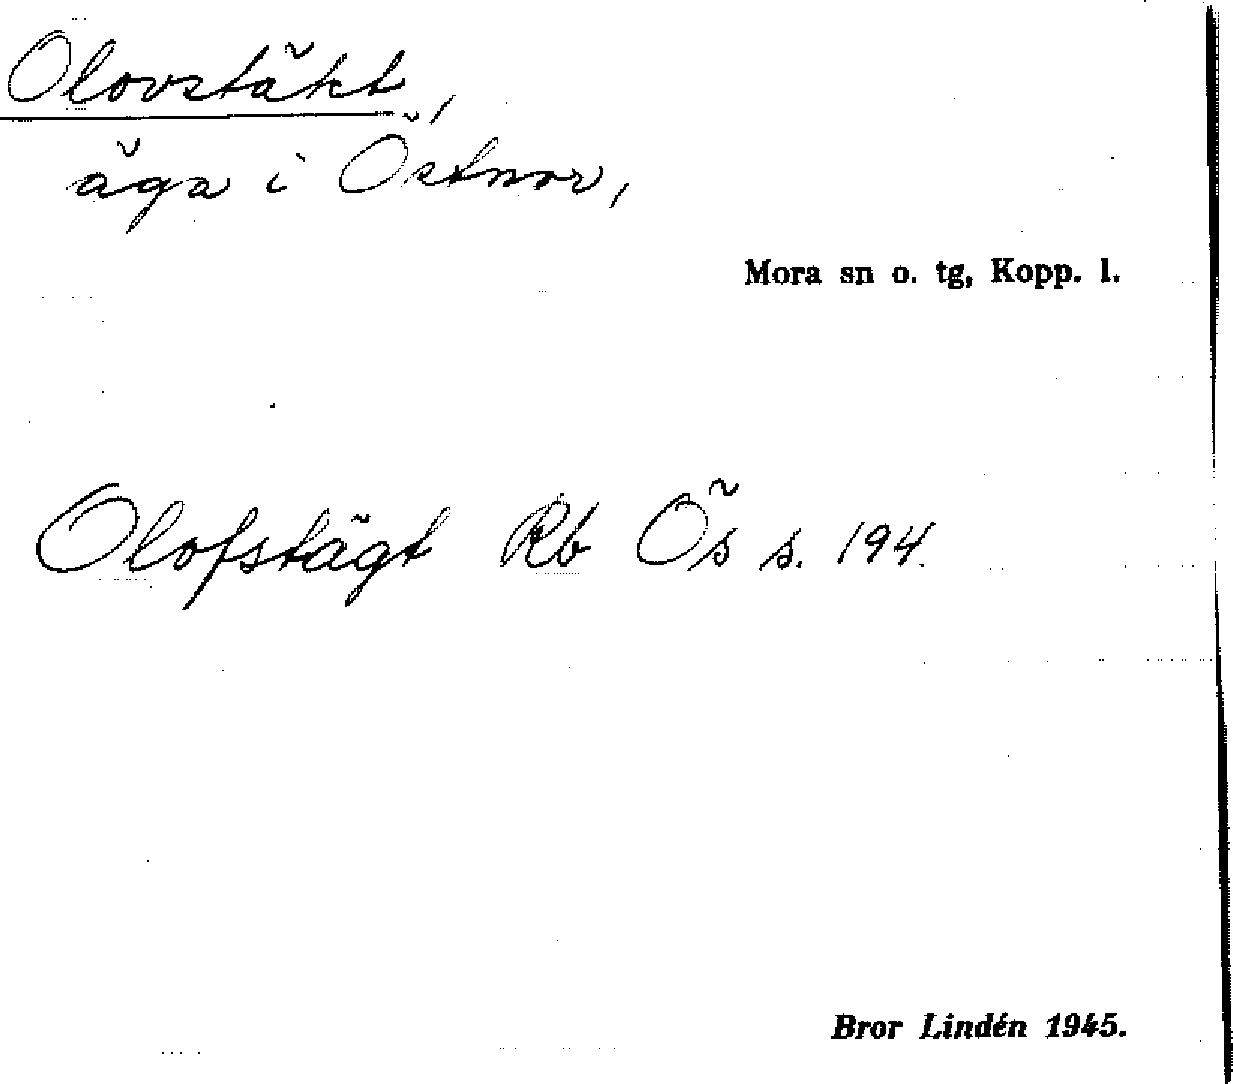 Olovstäkt,
äga i Östnor,
Mora sn o. tg, Kopp. l.
Olofstägt Rb Ös s. 194.
Bror Lindén 1945.